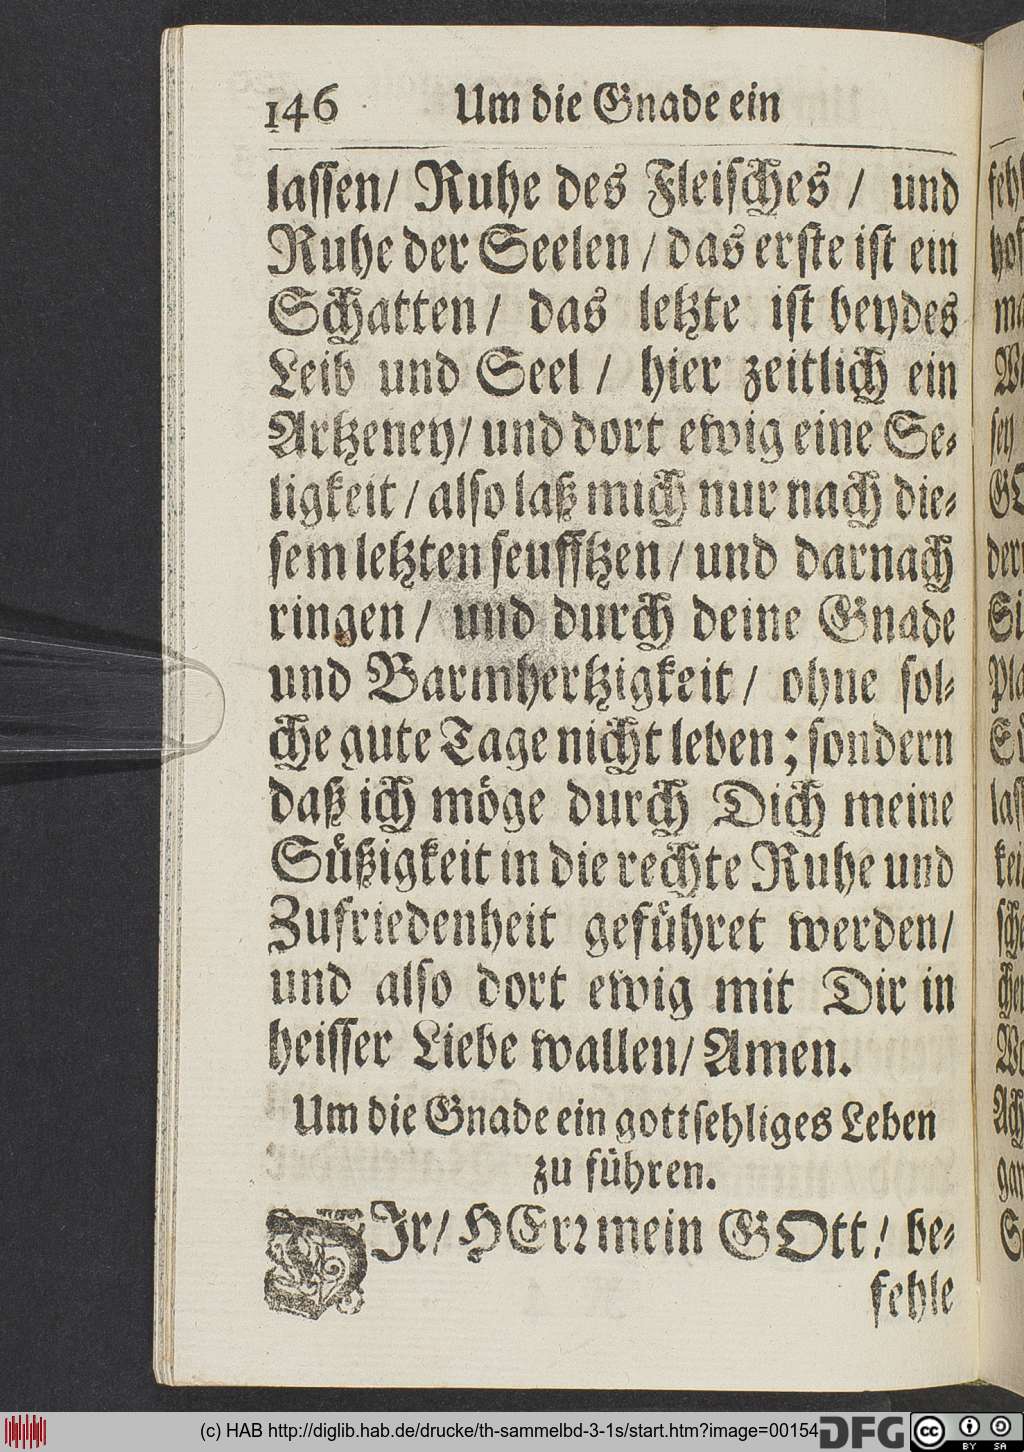 146 Um die Gnade ein
lassen/ Ruhe des Fleisches / und
Ruhe der Seelen / das erste ist ein
Schatten / das letzte ist beydes
Leib und Seel / hier zeitlich ein
Artzeney / und dort ewig eine Se⸗
ligkeit / also laß mich nur nach die⸗
sem letzten seufftzen / und darnach
ringen / und durch deine Gnade
und Barmhertzigkeit / ohne sol⸗
che gute Tage nicht leben; sondern
daß ich möge durch Dich meine
Süßigkeit in die rechte Ruhe und
Zufriedenheit geführet werden /
und also dort ewig mit Dir in
heisser Liebe wallen / Amen.
Um die Gnade ein gottsehliges Leben
zu führen.
DIr / HErꝛ mein GOtt / be⸗
fehle
(c) HAB http://diglib.hab.de/drucke/th-sammelbd-3-1s/start.htm?image=00154
DFG
cc
BY SA